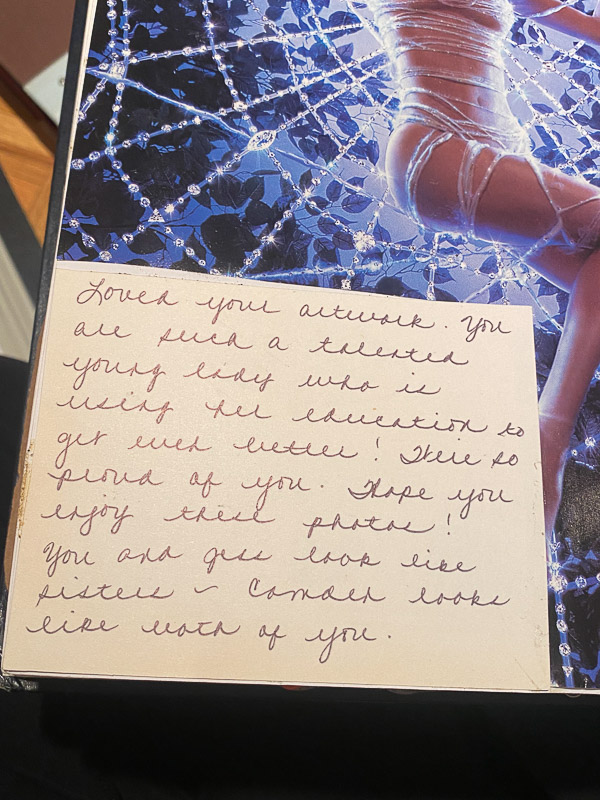 Loved your artwork. You
are such a talented
young lady who is
using her education to
get even better! We're so
proud of you. Hope you
enjoy these photos!
You and Jess look like
sisters ~ Camden looks
like both of you.